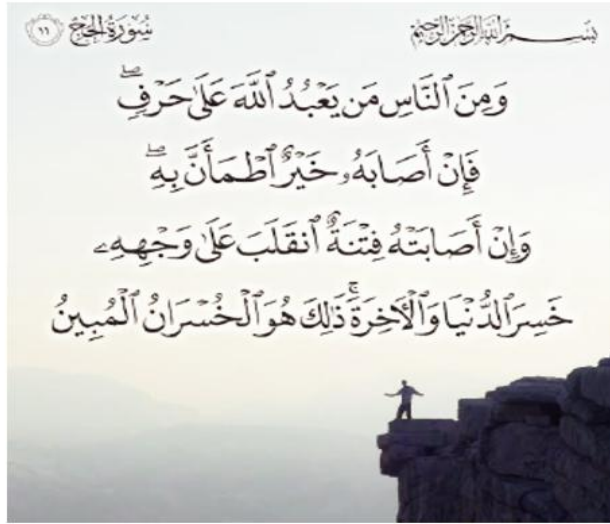 بِسْمِ ٱللَّهِ ٱلرَّحْمَٰنِ ٱلرَّحِيمِ
سُورَةُ الحَجِّ ١١
وَمِنَ ٱلنَّاسِ مَن يَعْبُدُ ٱللَّهَ عَلَىٰ حَرْفٍۖ
فَإِنْ أَصَابَهُۥ خَيْرٌ ٱطْمَأَنَّ بِهِۦۖ
وَإِنْ أَصَابَتْهُ فِتْنَةٌ ٱنقَلَبَ عَلَىٰ وَجْهِهِۦ
خَسِرَ ٱلدُّنْيَا وَٱلْأَخِرَةَۚ ذَٰلِكَ هُوَ ٱلْخُسْرَانُ ٱلْمُبِينُ